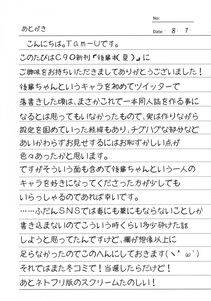 No:
Date 8・7
あとがき
こんにちは。Tam-Uです。
このたびはC90新刊『後輩状(夏)』に
ご興味をお持ちいただきましてありがとうございます!
後輩ちゃんというキャラを初めてツイッターで
落書きした頃は、まさかこれで一本同人誌を作る事に
なるとは思ってもいなかったもので、実は作りながら
設定を固めていった経緯もあり、チグハグな部分など
あいかわらずお見せするにはお恥ずかしい点が
色々あったかと思います。
ですがそういう面も含めて後輩ちゃんという一人の
キャラを好きになってくださった方が少しでも
いらっしゃるのであれば幸いです。
……ふだんSNSでは毒にも薬にもならないことしか
書き込まないのでこういう時くらい多少砕けた話
しようと思ってたんですけど、欄が想像以上に
足らなかったのでこのへんにしておきます(ヽ´ω`)
それではまたキコミで!当選したらだけど!
あとネトフリ版のスクリームたのしい!